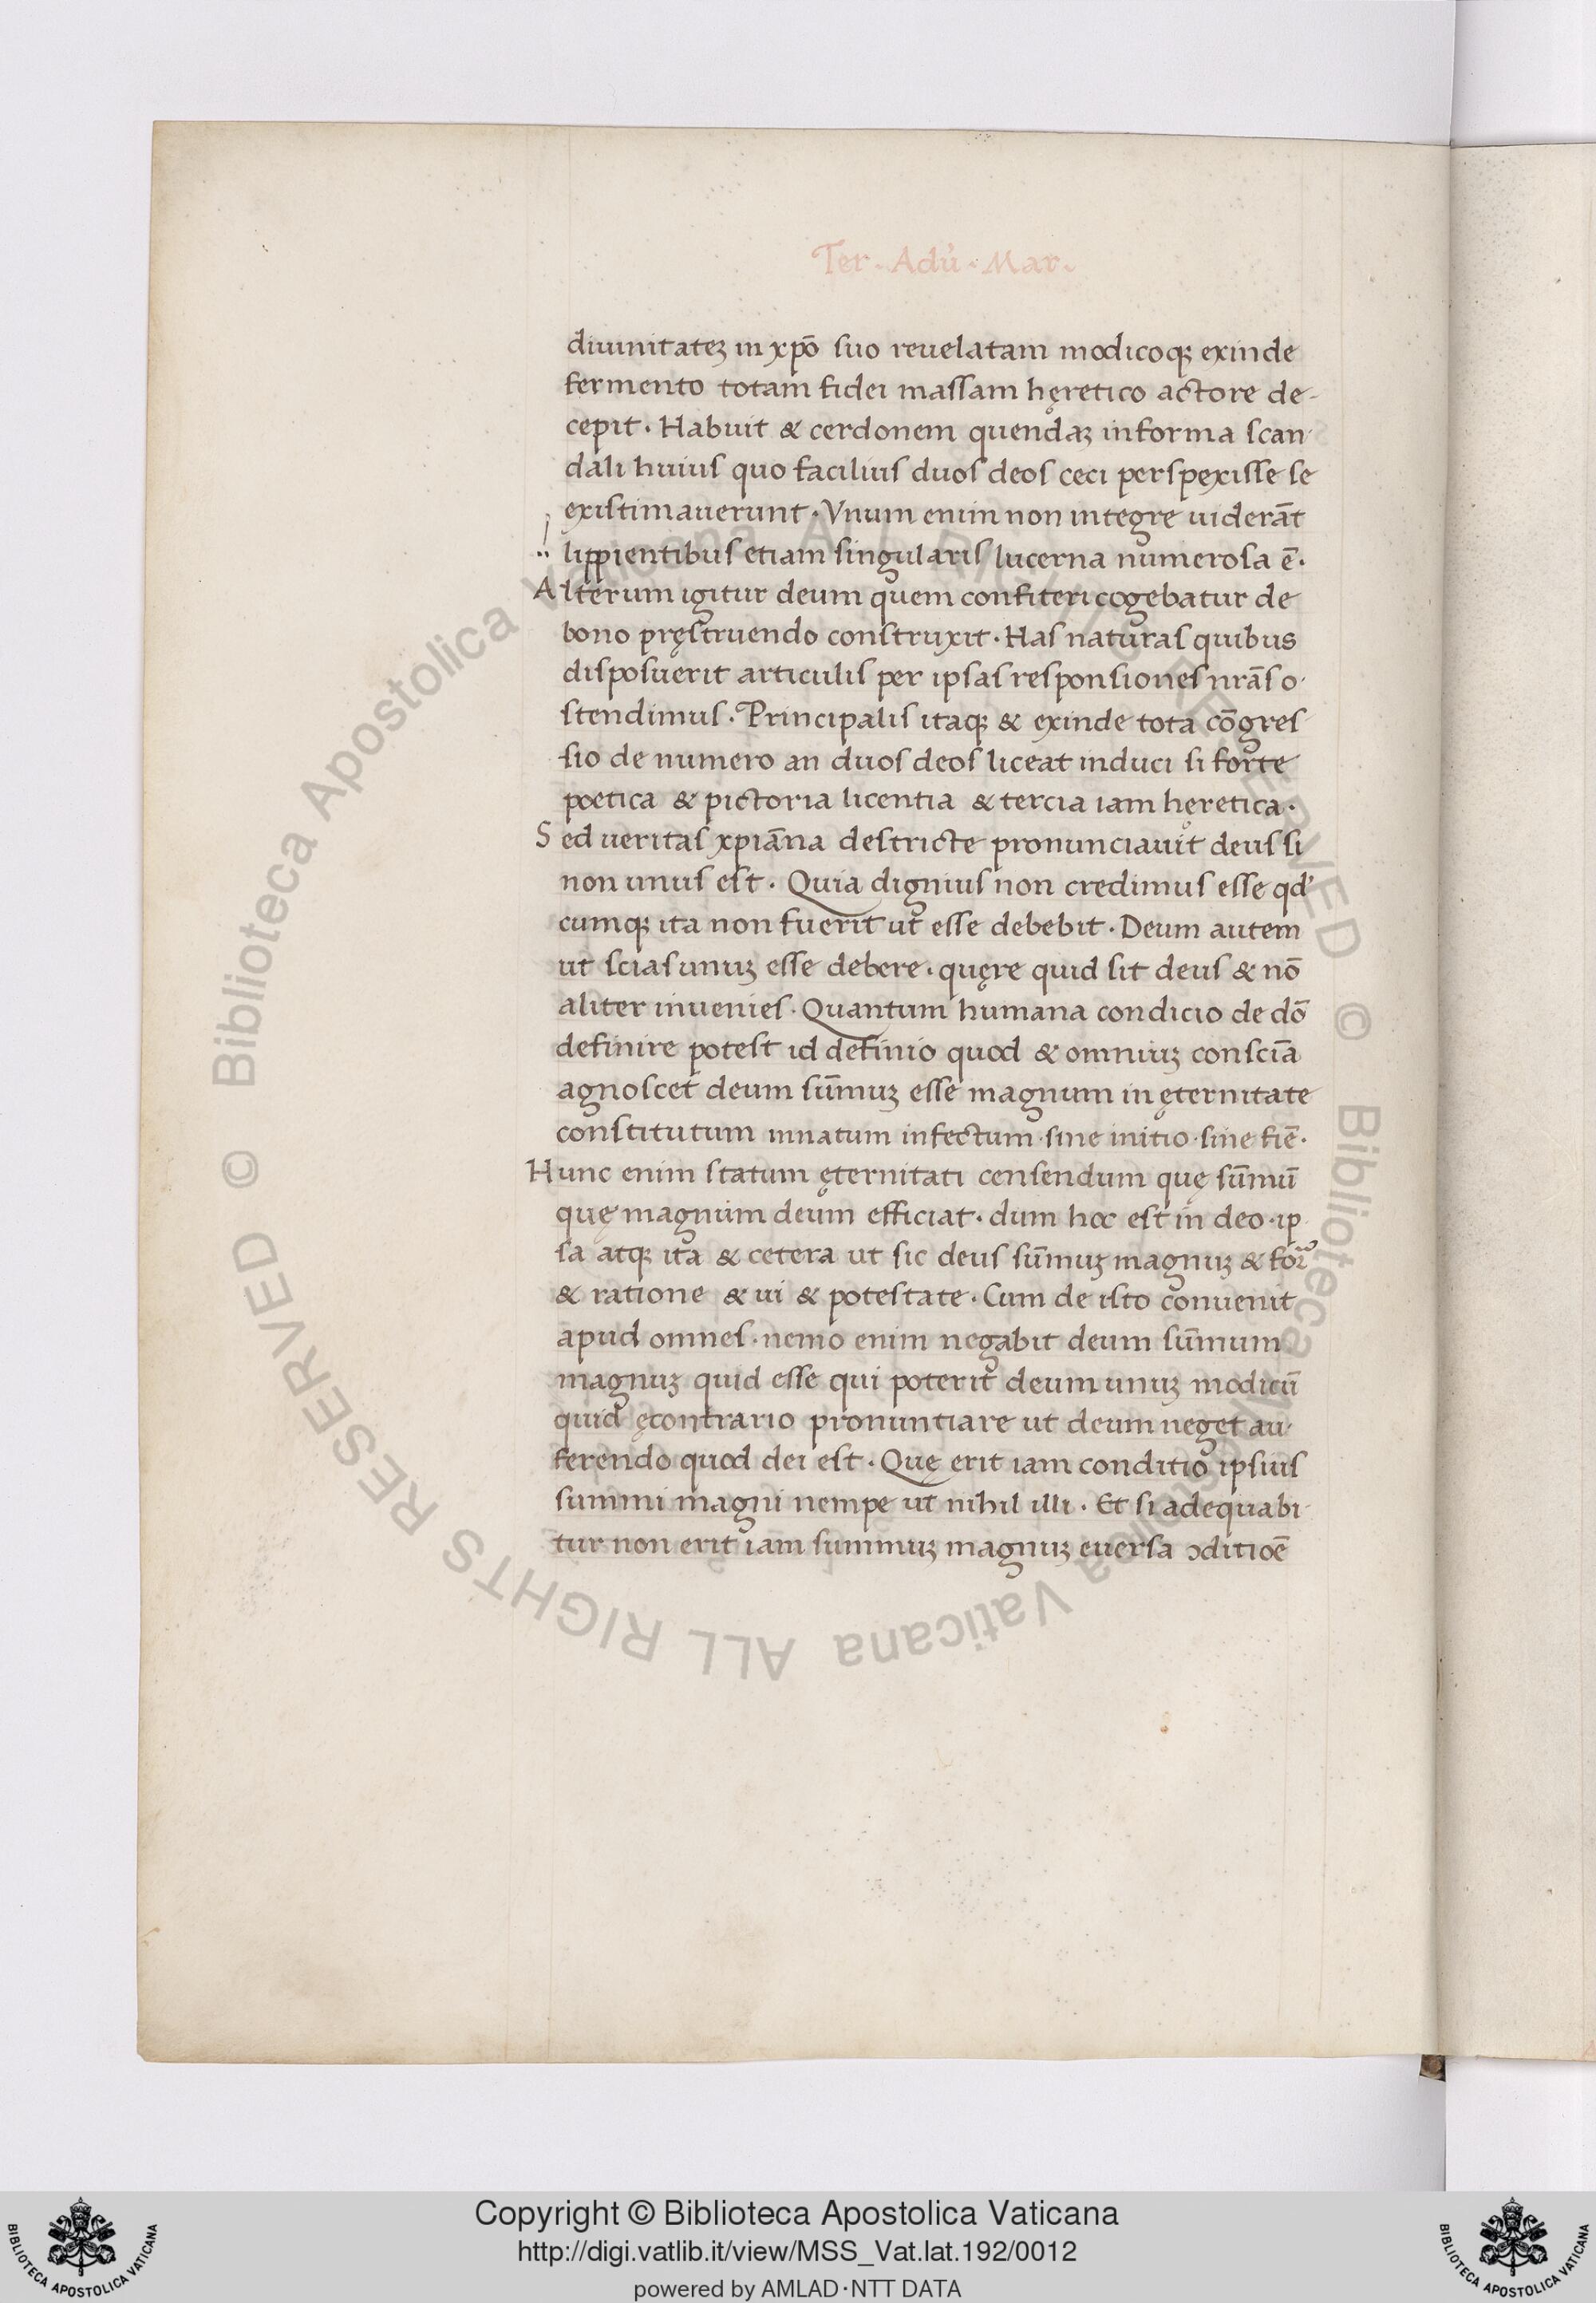 Ter. Adu̾. Mar.
diuinitateʒ in xp̄o suo reuelatam modicoqʒ exinde
fermento totam fidei massam hęretico actore de-
cepit. Habuit & cerdonem quendaʒ in forma scan
dali huius quo facilius duos deos ceci perspexisse se
existimauerunt. Vnum enim non integre uiderāt
lippientibus etiam singularis lucerna numerosa ē.
Alterum igitur deum quem confiteri cogebatur de
bono pręstruendo construxit. Has naturas quibus
disposuerit articulis per ipsas responsiones nr̄as o
stendimus. Principalis itaqʒ & exinde tota cōgres
sio de numero an duos deos liceat induci si forte
poetica & pictoria licentia & tercia iam hęretica.
Sed ueritas xpiāna destricte pronunciauit deus si
non unus est. Quia dignius non credimus esse qd̾
cumqʒ ita non fuerit ut esse debebit. Deum autem
ut scias unuʒ esse debere. quęre quid sit deus & nō
aliter inuenies. Quantum humana condicio de dō
definire potest id definio quod & omniuʒ conscīa
agnoscet deum sūmuʒ esse magnum in ęternitate
constitutum innatum infectum. sine initio. sine fiē.
Hunc enim statum ęternitati censendum quę sūmū
quę magnum deum efficiat. dum hoc est in deo. ip
sa atqʒ ita & cetera ut sic deus sūmuʒ magnuʒ & for̄
& ratione & ui & potestate. Cum de isto conuenit
apud omnes. nemo enim negabit deum sūmum
magnuʒ quid esse qui poterit deum unuʒ modicū
quid ęcontrario pronuntiare ut deum neget au
ferendo quod dei est. Quę erit iam conditio ipsius
summi magni nempe ut nihil illi. Et si adequabi
tur non erit iam summuʒ magnuʒ euersa ɔditioē
© Biblioteca Apostolica Vaticana ALL RIGHTS RESERVED © Biblioteca Apostolica Vaticana ALL RIGHTS RESERVED
Copyright © Biblioteca Apostolica Vaticana
http://digi.vatlib.it/view/MSS_Vat.lat.192/0012
powered by AMLAD·NTT DATA
BIBLIOTECA APOSTOLICA VATICANA
BIBLIOTECA APOSTOLICA VATICANA